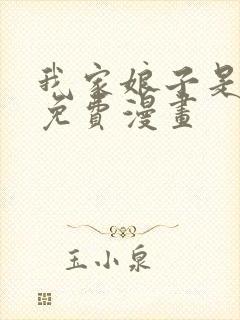 我家娘子是
免費漫畫
玉小泉